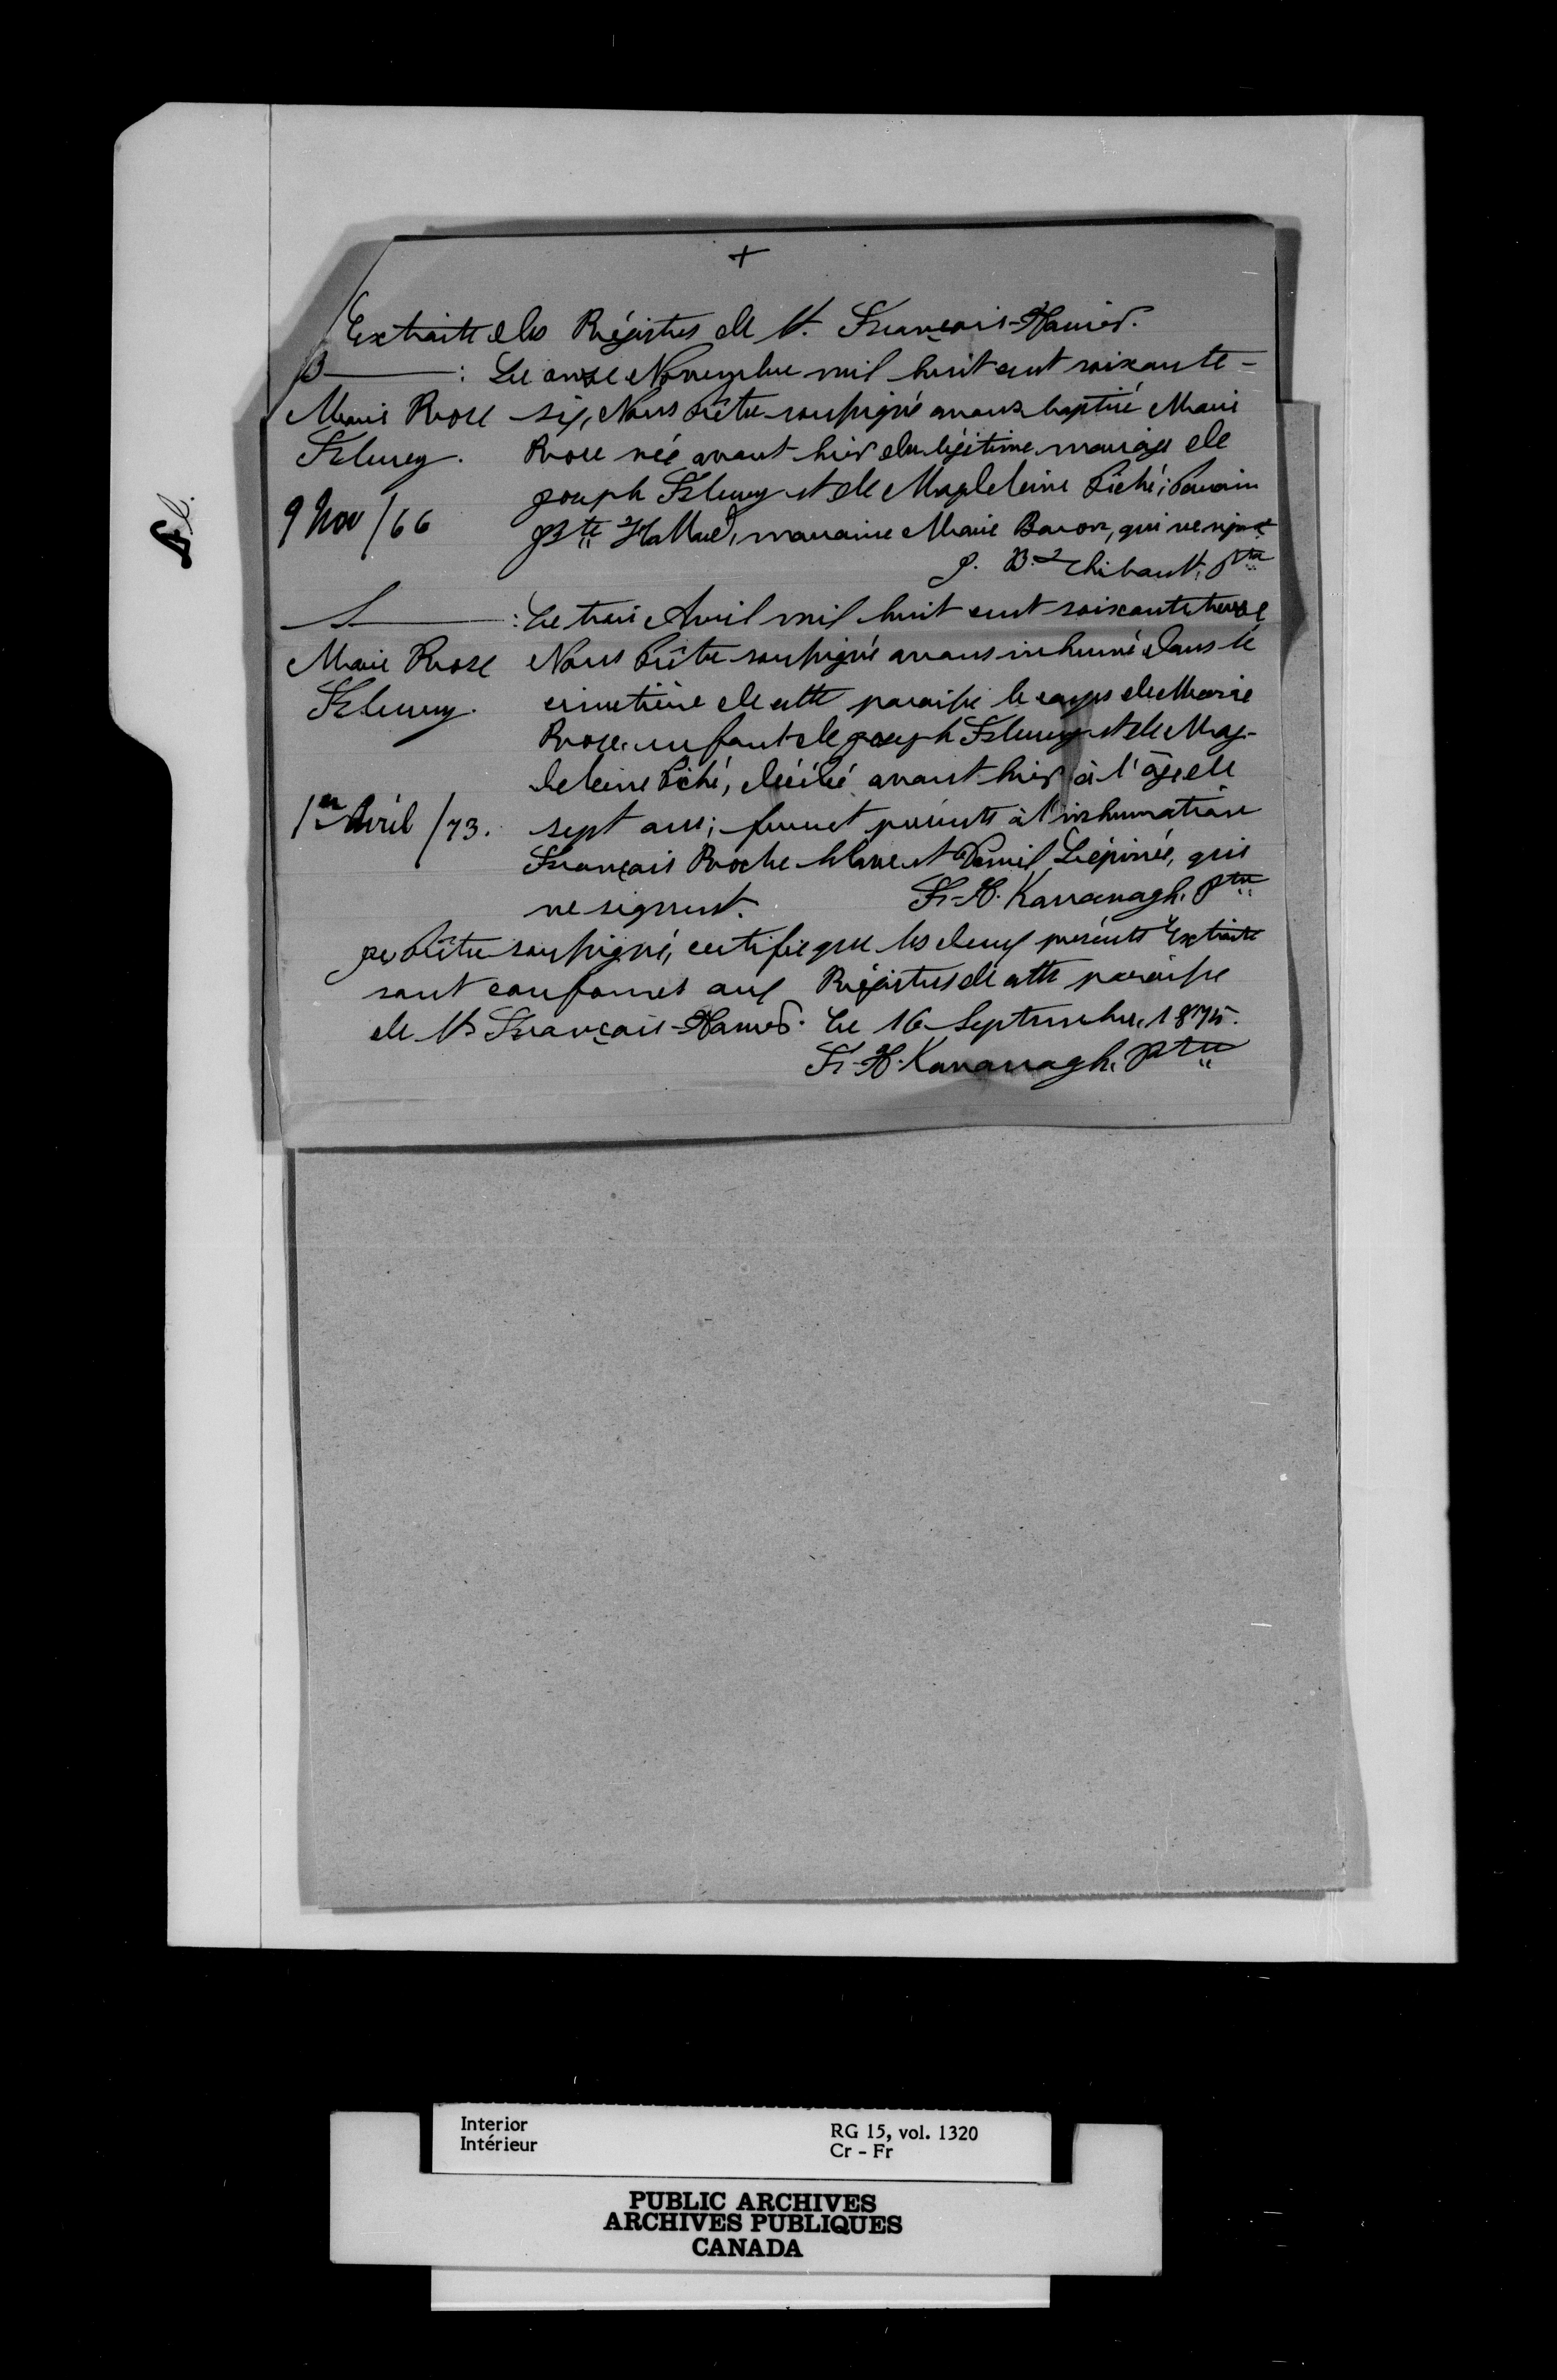 +
Extraits des Régistres de St. François-Xavier.
B———: Le onze Novembre mil huit cent soixante-
Marie Rose six, Nous Prêtre soussigné avons baptisé Marie
Fleury. Rose née avant hier du légitime mariage de
Joseph Fleury et de Magdeleine Piché; Parrain
9 Nov/66 JBte Hallué, marraine Marie Baron, qui ne signent
J. Bte Thibault, Ptre
S———: Le trois Avril mil huit cent soixante treize
Marie Rose Nous Prêtre soussigné avons inhumé dans le
Fleury. cimetière de cette paroisse le corps de Marie
Rose, enfant de Joseph Fleury et de Mag-
deleine Piché, décédé avant hier à l'âge de
1er Avril/73. sept ans; furent présents à l'inhumation
François Rocheblave et Daniel Lépiné, qui
ne signent. Fr-X. Kavanagh. Ptre
Je, Prêtre soussigné, certifie que les deux présents Extraits
sont conformes aux Régistres de cette paroisse
de St. François-Xavier. Le 16 Septembre, 1875.
Fr-X. Kavanagh. Ptre
Interior
Intérieur
RG 15, vol. 1320
Cr - Fr
PUBLIC ARCHIVES
ARCHIVES PUBLIQUES
CANADA